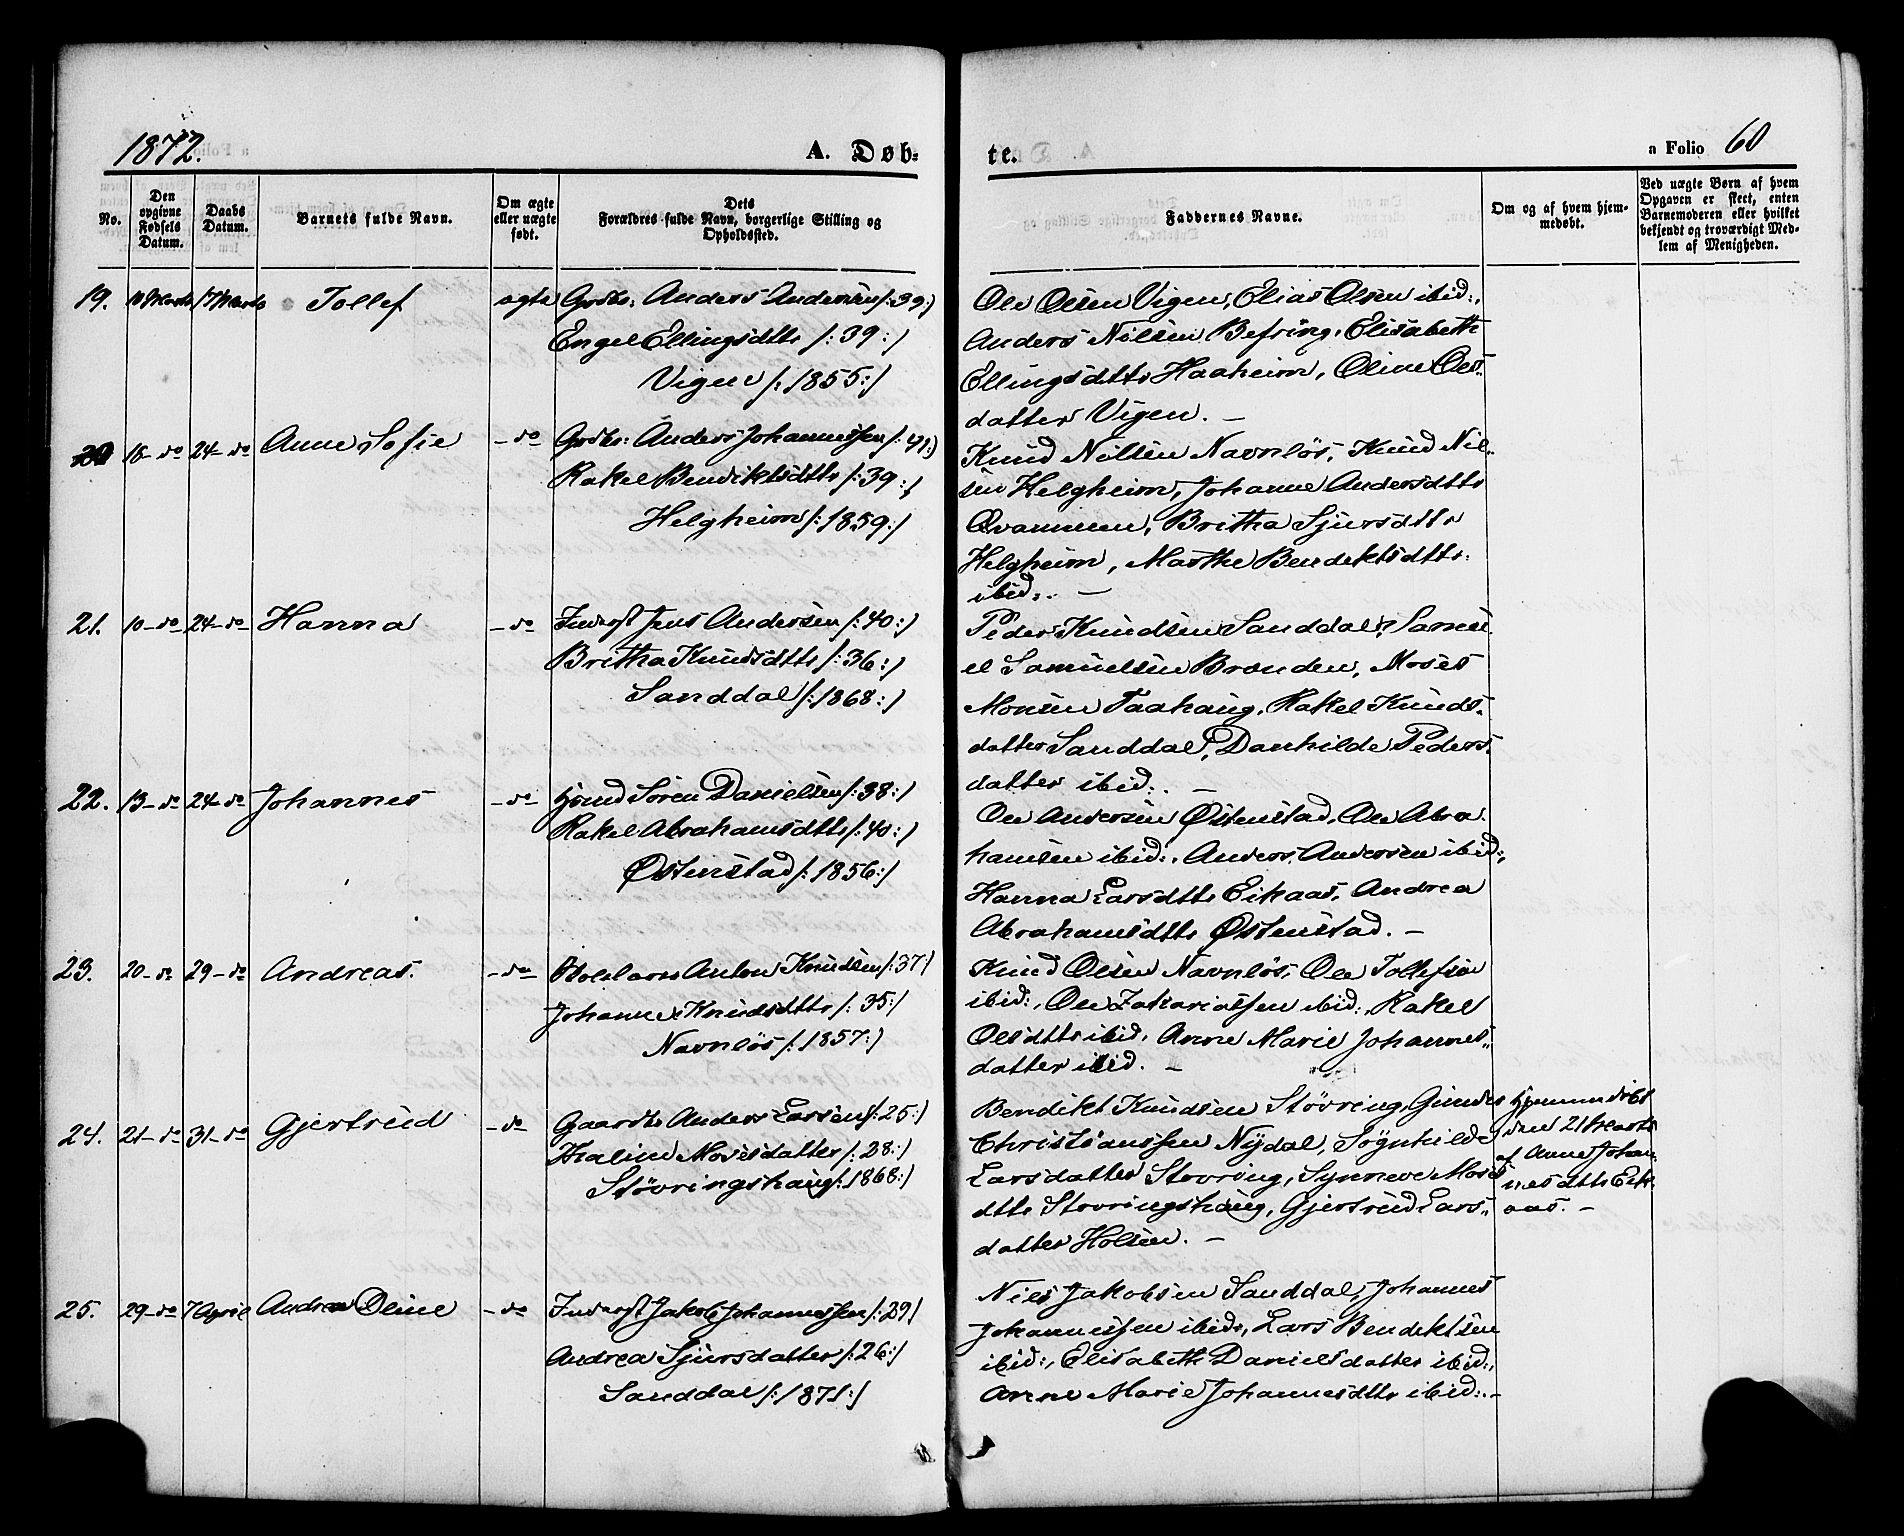 1872.
A. Døb-
te.
a Folio 60
No.
Den opgivne Fødsels Datum.
Daabs Datum.
Barnets fulde Navn.
Om ægte eller uægte født.
Dets
Forældres fulde Navn, borgerlige Stilling og
Opholdssted.
Faddernes Navne.
Om og af hvem hjem-
medøbt.
Ved uægte Børn af hvem
Opgaven er skeet, enten
Barnemoderen eller hvilket
bekjendt og troværdigt Med-
lem af Menigheden.
19. Marts 17 Marts Tollef ægte Grdbr: Anders Andersen /:39:/
Engel Ellingsdttr /:39:/
Vigen /:1855:/
Ole Olsen Vigen, Elias Olsen ibid:,
Anders Nilsen Befring, Elisabeth
Ellingsdttr Haaheim, Oline Ols-
datter Vigen. —
20 18-do 24-do Anne Sofie -do Grdbr: Anders Johannessen /:41:/
Rakel Bendiktsdttr /:39:/
Helgheim /:1859:/
Knud Nilsen Navnløs, Knud Nil-
sen Helgheim, Johanne Andersdttr
Qvammen, Britha Sjursdttr
Helgheim, Marthe Bendiktsdttr
ibid:. —
21. 10-do 24-do Hanna -do Inderst Jens Andersen /:40:/
Britha Knudsdttr /:36:/
Sanddal /:1868:/
Peder Knudsen Sanddal, Samu-
el Samuelsen Brænden, Moses
Monsen Taahaug, Rakel Knuds-
datter Sanddal, Danhilde Peders-
datter ibid:. —
22. 13-do 24-do Johannes -do- Hsmd Søren Danielsen /:38:/
Rakel Abrahamsdttr /:40:/
Østenstad /:1856:/
Ole Andersen Østenstad, Ole Abra-
hamsen ibid:, Anders Andersen ibid:,
Hanna Larsdttr Eikaas, Andrea
Abrahamsdttr Østenstad. —
23. 20-do 29-do Andreas. -do- Anton Knudsen /:37:/
Johanne Knudsdttr /:35:/
Navnløs /:1857:/
Knud Olsen Navnløs, Ole Tollefsen
ibid:, Ole Zakariassen ibid:, Rakel
Olsdttr ibid, Anne Marie Johannes-
datter ibid. —
24. 21-do 31-do Gjertrud -do Gaardbr Anders Larsen /:25:/
Malene Mosesdatter /:28:/
Støvringshaug /:1868:/
Bendikt Knudsen Støvring, Gunder
Christianssen Nydal, Søgnhilde
Larsdatter Støvring, Synneve Moses
dttr Støvringshaug, Gjertrud Lars-
datter Holsen. —
Hjemmedøbt
den 21 Marts
af Anne Johan-
nesdttr Eik-
aas. —
25. 29-do 7 April Andrea Oline -do Inderst Jakob Johannessen /:29/
Andrea Sjursdatter /:26:/
Sanddal /:1871:/
Nils Jakobsen Sanddal, Johannes
Johannessen ibid:, Lars Bendiktsen
ibid:, Elisabeth Danielsdatter ibid:,
Anne Marie Johannesdttr ibid:. -